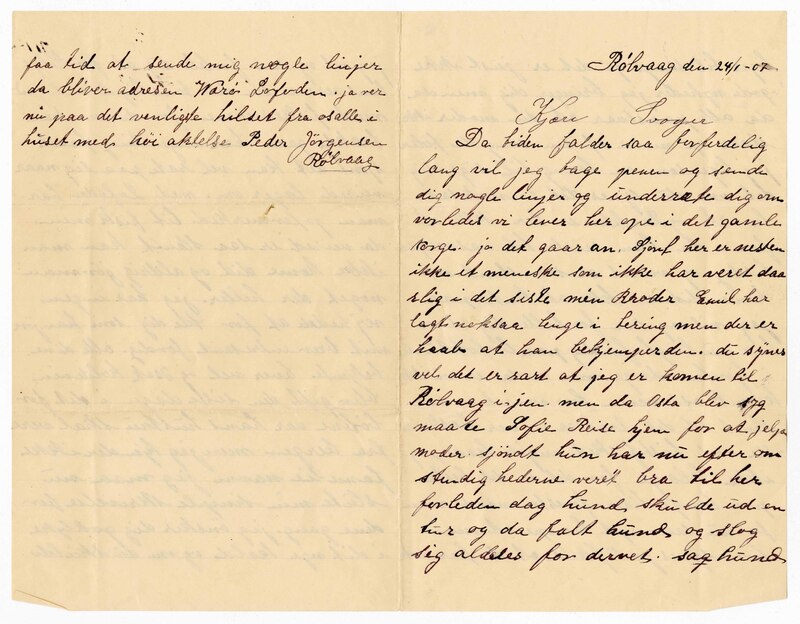 faa tid at sende mig nogle linjer
da bliver adresen Warö Lofoden. ja ver
nu paa det venligste hilset fra osalle i
huset med höi aktelse Peder Jörgensen
Rølvaag
Rølvaag den 24/1-07
Kjære Svoger
Da tiden falder saa forferdelig
lang vil jeg tage penen og sende
dig nogle linjer og underrete dig om
vorledes vi lever her ope i det gamle
norge. jo det gaar an. her er nesten
ikke et meneske som ikke har veret daa
rlig i det siste men Broder Emil har
lagt noksaa lenge i tering men der er
haab at han bekjemper den. du synes
vel det er rart at jeg er komen til
Rølvaag i.jen. men da Osta blev syg
maate Sofie Reise hjem for at jelpe
moder. sjöndt hun har nu efter om
stendig hederne veret bra til her
forleden dag hund skulde ud en
tur og da falt hund og slog
sig aldeles for dervet. saa hund